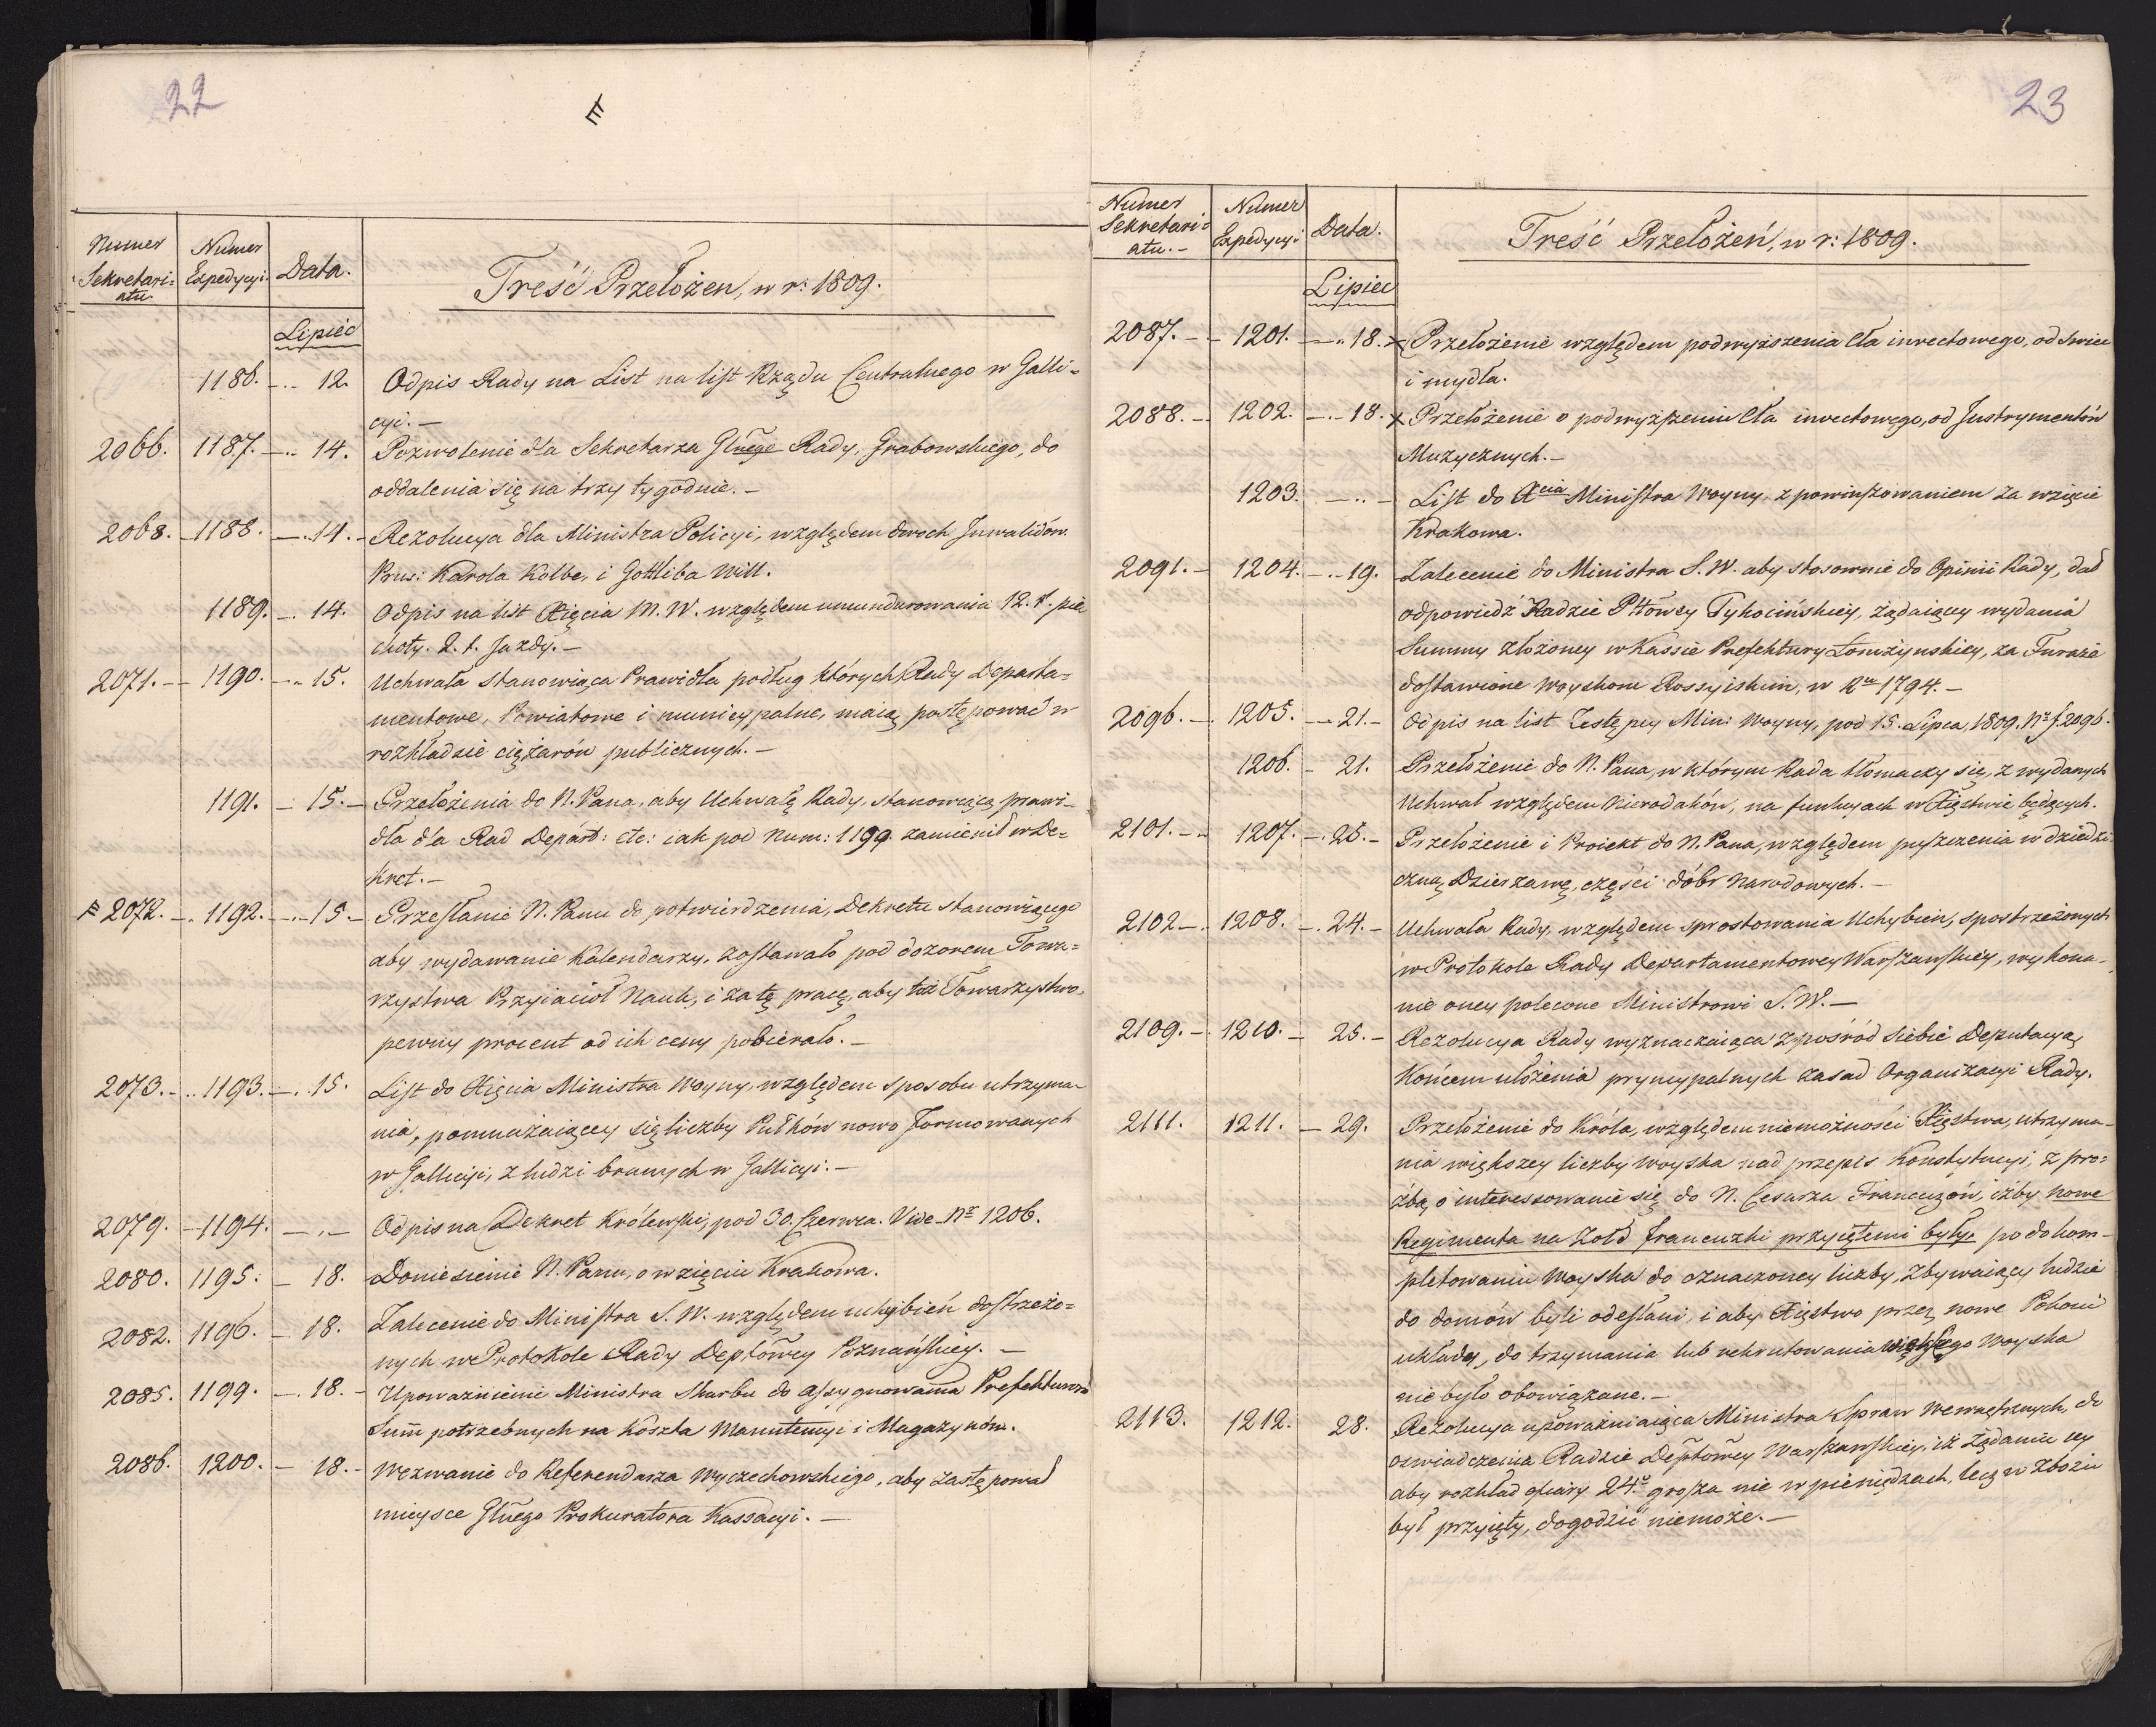 22
Numer Sekretari=atu. Numer Expedycyi. Data. Treść Przełożen, w r: 1809.
Lipiec
1186. 12. Odpis Rady na List na list Rządu Centralnego w Galli=
cyi.—
2066. 1187. 14. Pozwolenie dla Sekretarza Głnego Rady, Grabowskiego, do
oddalenia się na trzy tygodnie.—
2068. 1188. 14. Rezolucya dla Ministra Policyi, względem dwoch Inwalidów
Prus: Karola Kolbe, i Gottliba Will.
1189. 14. Odpis na list Xięcia M. W. względem umundurowania 12. t. pie
choty. 2. t. Jazdy.—
2071. 1190. 15. Uchwała stanowiąca Prawidła podług których Rady Departa=
mentowe, Powiatowe i municypalne, maią postępować w
rozkładzie ciężarów publicznych.—
1191. 15. Przełożenia do N. Pana, aby Uchwałę Rady, stanowiącą prawi=
dła dla Rad Depart: etc: iak pod Num: 1199. zamienił w De=
kret.—
2072. 1192. 15. Przesłanie N. Panu do potwierdzenia, Dekretu stanowiącego
aby wydawanie Kalendarzy, zostawało pod dozorem Towa=
rzystwa Przyiacioł Nauk, i za tę pracę, aby toż Towarzystwo,
pewny procent od ich ceny pobierało.—
2073. 1193. 15. List do Xięcia Ministra Woyny, względem sposobu utrzyma=
nia, pomnażaiącey się liczby Pułków nowo formowanych
w Gallicyi, z ludzi branych w Gallicyi.—
2079. 1194. Odpis na Dekret Królewski, pod 30. Czerwca. Vide Nr 1206.
2080. 1195. 18. Doniesienie N. Panu, o wzięciu Krakowa.
2082. 1196. 18. Zalecenie do Ministra S. W. względem uchybień dostrzeżo=
nych w Protokole Rady Deptowey Poznańskiey.—
2085. 1199. 18. Upoważnienie Ministra Skarbu do assygnowania Prefekturom
Summ potrzebnych na Koszta Manutencyi i Magazynów.
2086. 1200. 18. Wezwanie do Referendarza Wyczechowskiego, aby zastępował
mieysce Głnego Prokuratora Kassacyi.—
23
Numer Sekretari=atu.— Numer Expedycyi Data. Treść Przełożeń, w r: 1809.
Lipiec
2087. 1201. 18. × Przełożenie względem podwyższenia Cła inwectowego, od świec
i mydła.
2088. 1202. 18. × Przełożenie o podwyższeniu Cła inwectowego, od Instrymentów
Muzycznych.—
1203. List do Xcia Ministra Woyny, z powinszowaniem za wzięcie
Krakowa.
2091. 1204. 19. Zalecenie do Ministra S. W. aby stosownie do Opinii Rady, dał
odpowiedź Radzie Pttowey Tykocińskiey, żądaiącey wydania
Summy złożoney w Kassie Prefektury Łomżynskiey, za Furaże
dostawione Woyskom Rossyiskim, w Ru 1794.—
2096. 1205. 21. Odpis na list Zastępcy Min: Woyny, pod 15. Lipca, 1809. Nr J. 2096.
1206. 21. Przełożenie do N. Pana, w którym Rada tłomaczy się, z wydanych
Uchwał względem Nierodaków, na funkcyach w Xięstwie będących.
2101. 1207. 25. Przełożenie i Proiekt do N. Pana, względem puszczenia w dziedzi
czną Dzierzawę, części dóbr Narodowych.—
2102 1208. 24. Uchwała Rady, względem sprostowania Uchybień, spostrzeżonych
w Protokole Rady Departamentowey Warszawskiey, wykona=
nie oney polecone Ministrowi S. W.—
2109. 1210. 25. Rezolucya Rady wyznaczaiąca zpośród siebie Deputacyą,
Końcem ułożenia pryncypalnych zasad Organizacyi Rady.
2111. 1211. 29. Przełożenie do Króla, względem niemożności Xięstwa, utrzyma=
nia większey liczby woyska nad przepis Konstytucyi, z pro=
źbą, o interessowanie się do N. Cesarza Francuzów, iżby nowe
Regimenta na Żołd francuzki przyiętemi były, po dokom=
pletowaniu Woyska do oznaczoney liczby, zbywaiący ludzie
do domów byli odesłani, i aby Xięstwo przez nowe Pokoiu
układy, do trzymania lub rekrutowania większego Woyska
nie było obowiązane.—
2113. 1212. 28. Rezolucya upoważniaiąca Ministra Spraw Wewnętrznych, do
oswiadczenia Radzie Deptowey Warszawskiey, iż żądaniu iey
aby rozkład ofiary 24o grosza nie w pieniędzach, lecz w Zbożu
był przyięty, dogodzić niemoże.—